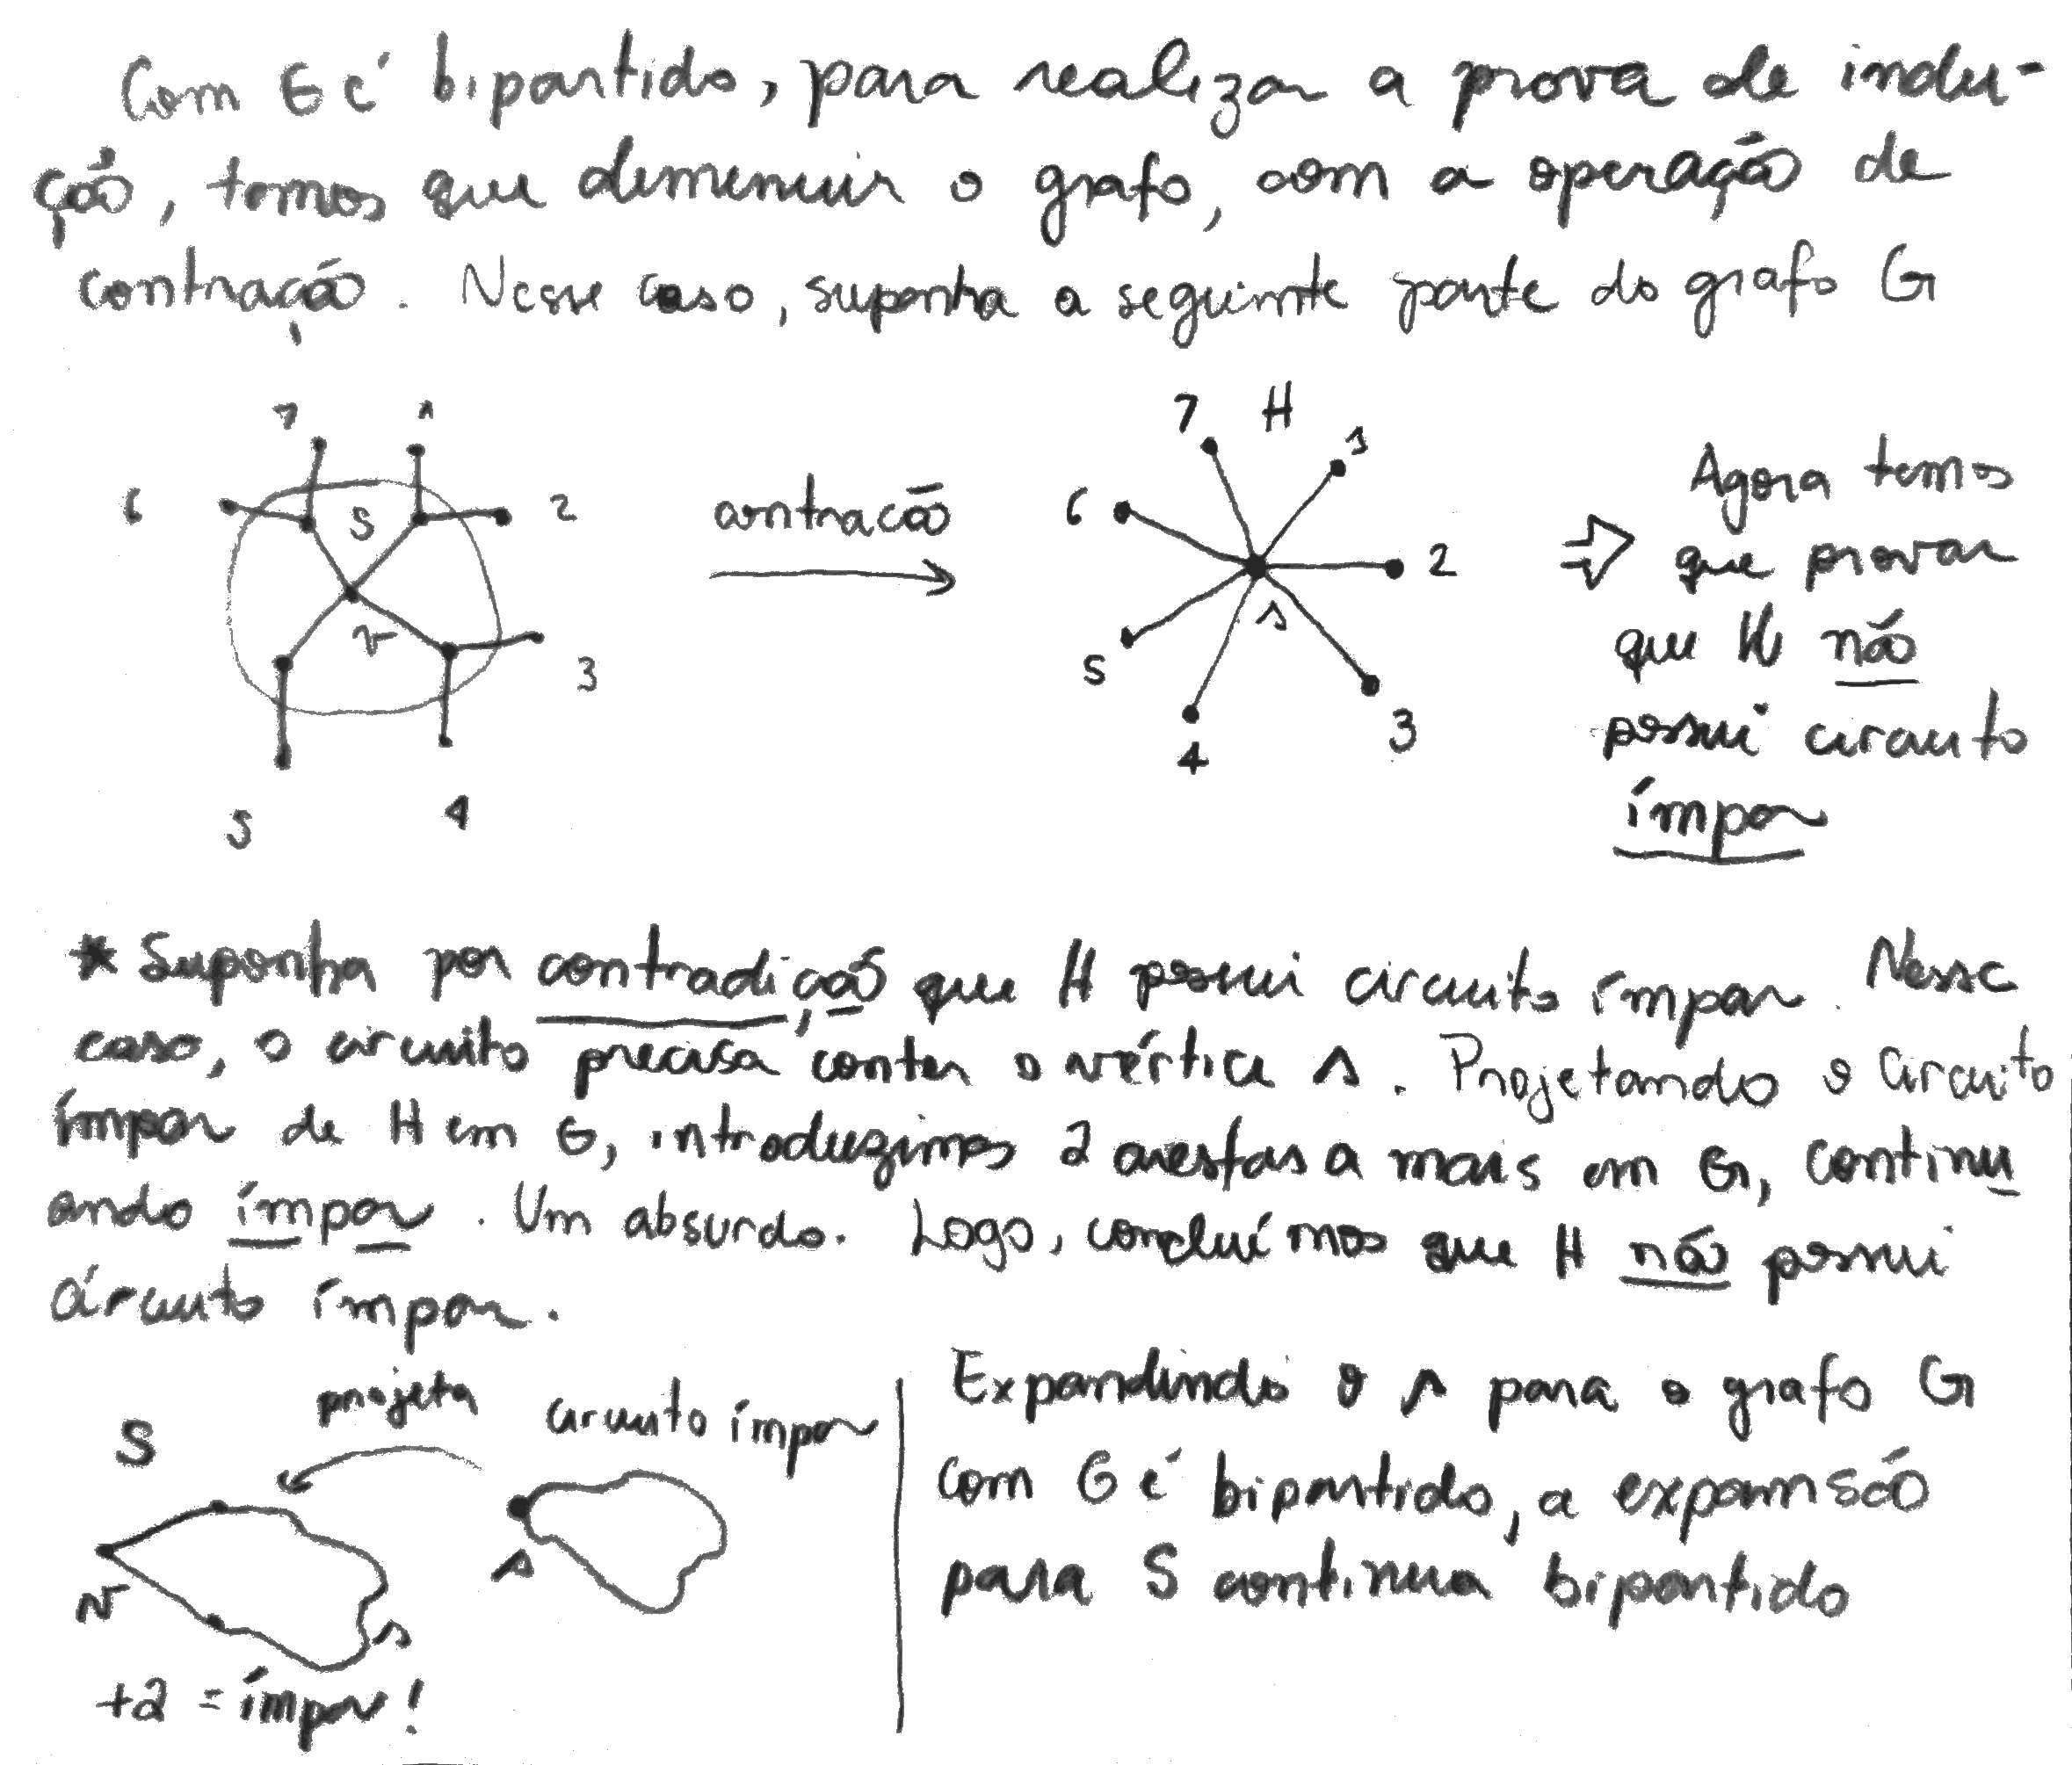 Com G é bipartido, para realizar a prova de indu-
ção, temos que demenuir o grafo, com a operação de
contração. Nesse caso, suponha a seguinte parte do grafo G
7 1
6 S 2
v
3
5 4
contração
7 H 1
6 2
s
5
4 3
Agora temos
que provar
que H não
possui circuito
ímpar
* Suponha por contradição que H possui circuito ímpar. Nesse
caso, o circuito precisa conter o vértice s. Projetando o circuito
ímpar de H em G, introduzimos 2 arestas a mais em G, continu
ando ímpar. Um absurdo. Logo, concluímos que H não possui
circuito ímpar.
S projeta circuito ímpar
v s s
+2 = ímpar!
Expandindo o s para o grafo G
com G é bipartido, a expansão
para S continua bipartido